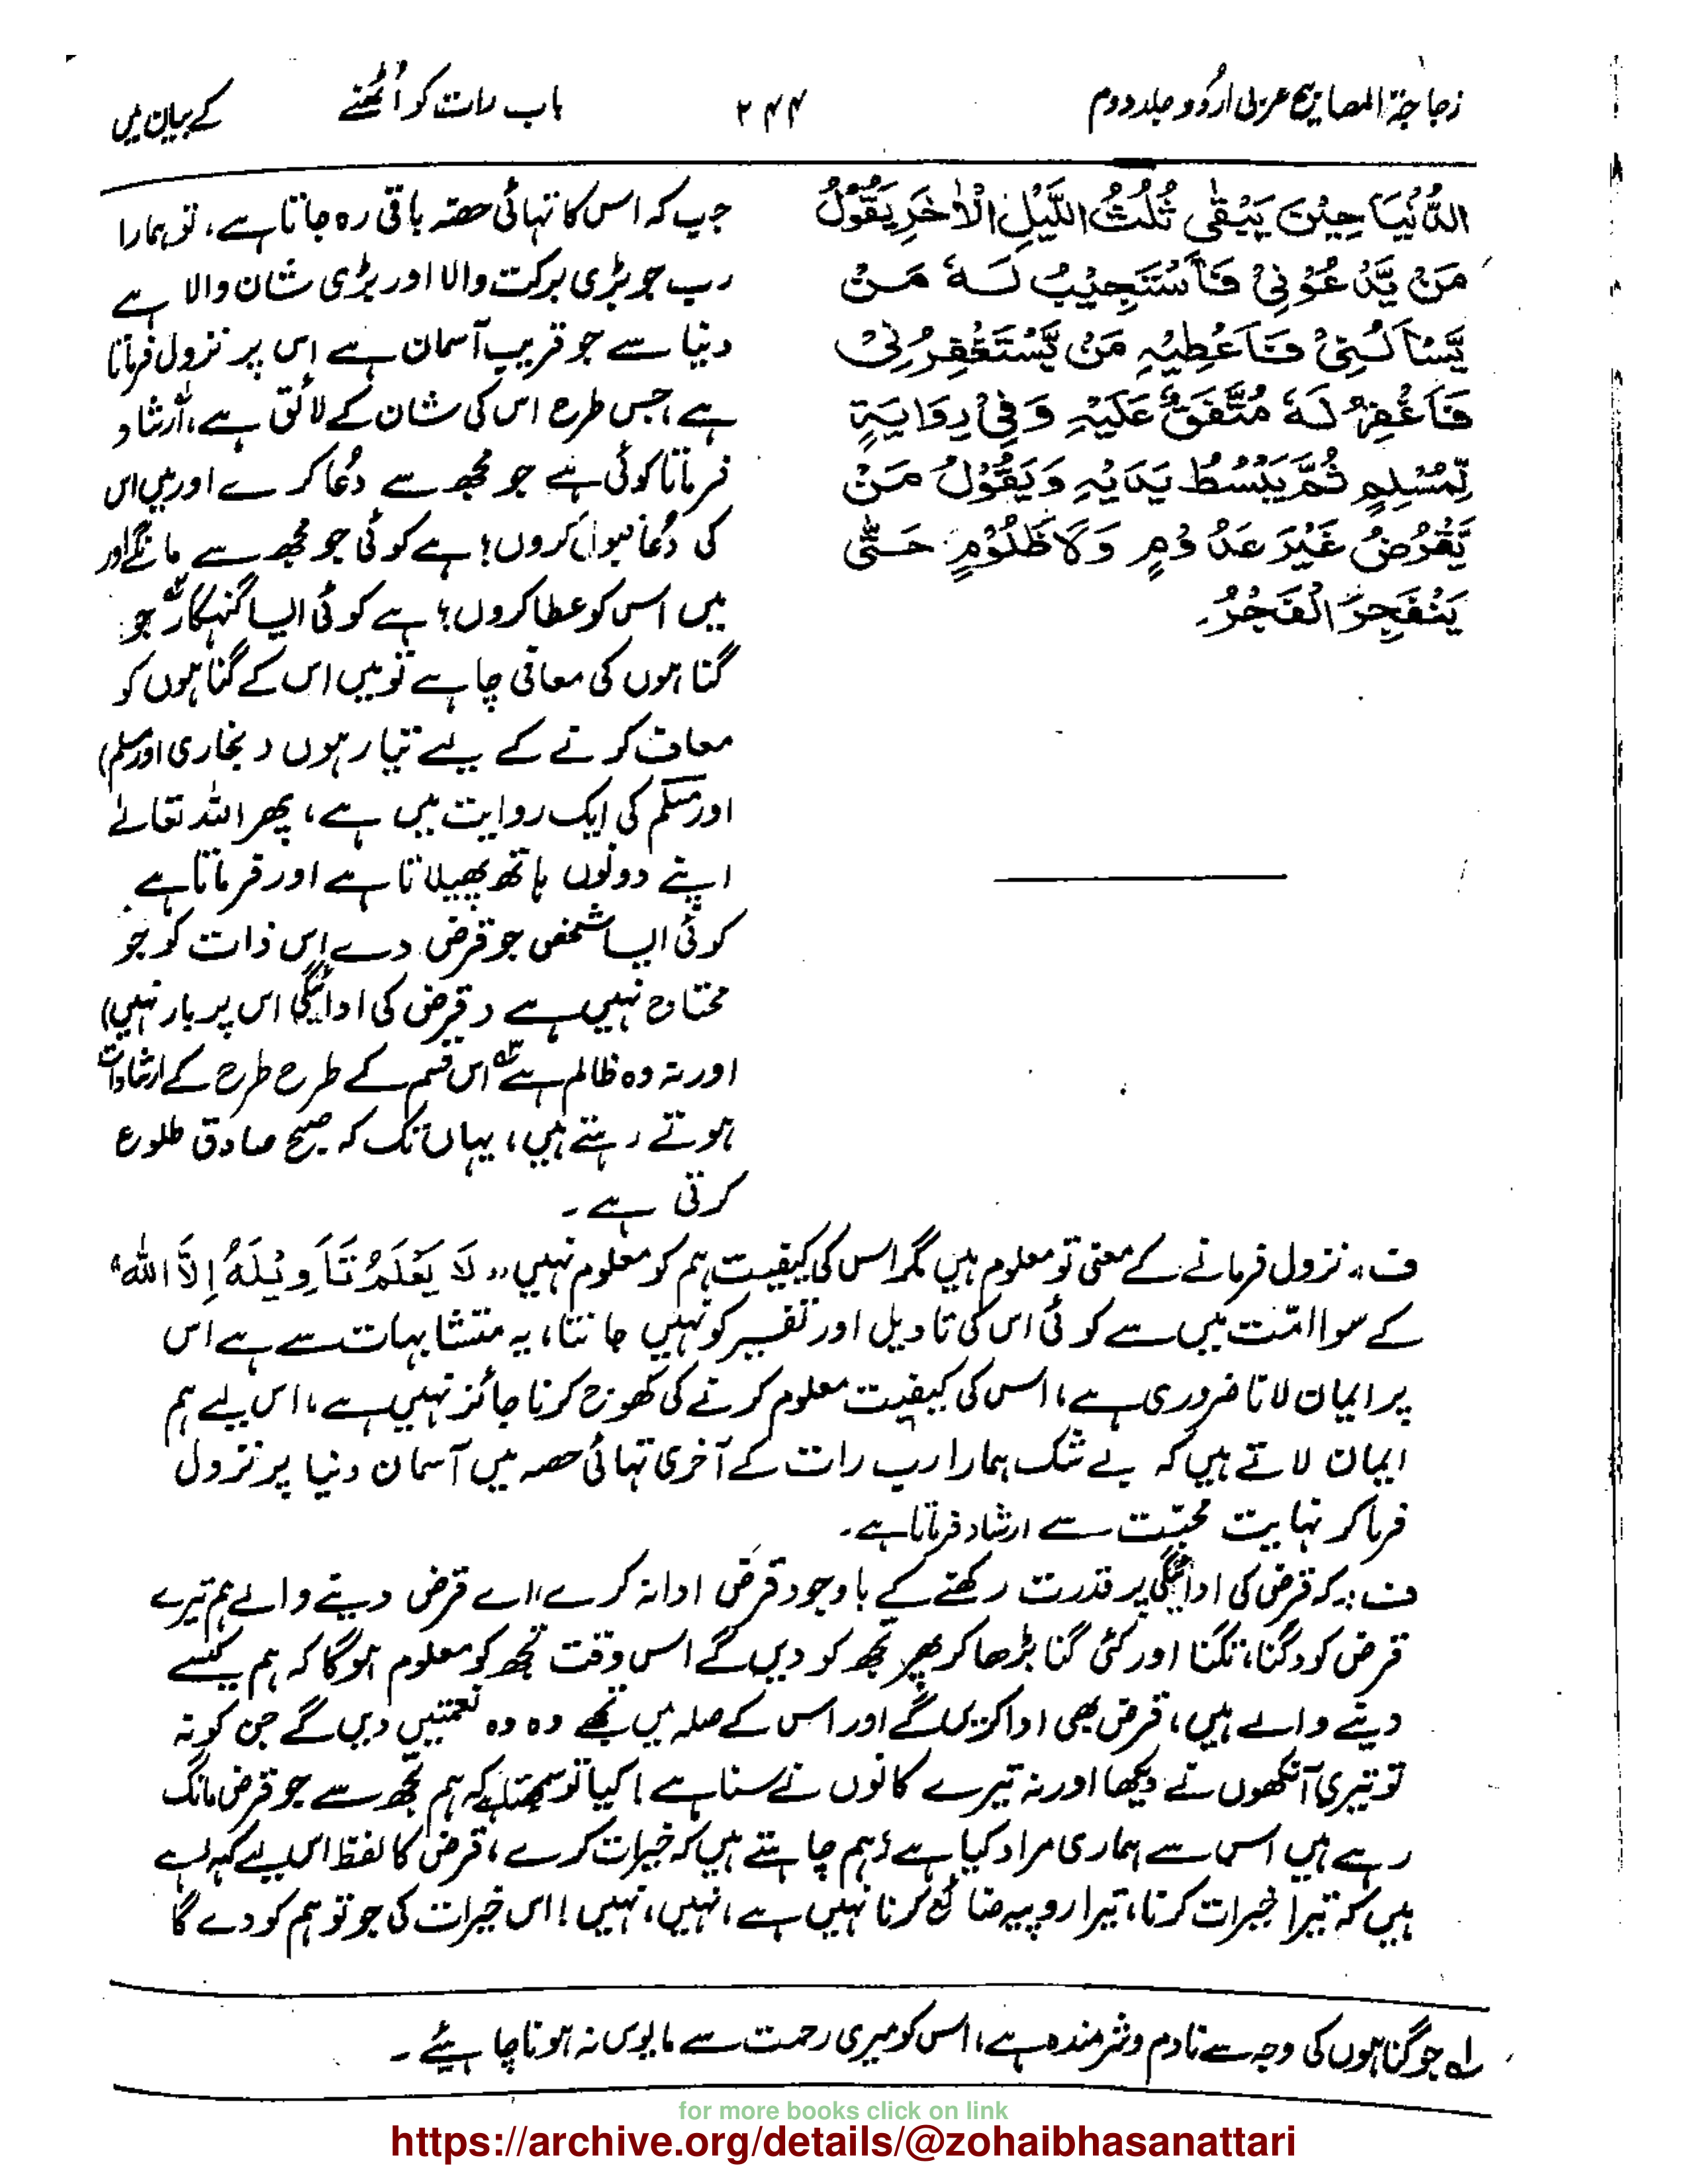 زجاجۃ المصابیح عربی اردُو جلد دوم
۲۴۴
باب رات کو اُٹھنے
کے بیان میں
الدُّنْيَا حِيْنَ يَبْقٰى ثُلُثُ اللَّيْلِ الْاٰخَرِ يَقُوْلُ
مَنْ يَّدْعُوْنِيْ فَاَسْتَجِيْبُ لَهٗ مَنْ
يَّسْاَلُنِيْ فَاَعْطِيْهِ مَنْ يَّسْتَغْفِرُنِيْ
فَاَغْفِرُ لَهٗ مُتَّفَقٌ عَلَيْهِ وَفِيْ رِوَايَةٍ
لِّمُسْلِمٍ ثُمَّ يَبْسُطُ يَدَيْهِ وَيَقُوْلُ مَنْ
يَّقْرُضُ غَيْرَ عَدُوْمٍ وَلَا ظَلُوْمٍ حَتّٰى
يَنْفَجِرَ الْفَجْرُ۔
جب کہ اس کا تہائی حصّہ باقی رہ جاتا ہے، تو ہمارا
رب جو بڑی برکت والا اور بڑی شان والا ہے
دنیا سے جو قریب آسمان ہے اس پر نزول فرماتا
ہے، جس طرح اس کی شان کے لائق ہے، ارشاد
فرماتا کوئی ہے جو مجھ سے دُعا کرے اور میں اس
کی دُعا قبول کروں؛ ہے کوئی جو مجھ سے مانگے اور
میں اس کو عطا کروں؛ ہے کوئی ایسا گنہگار جو
گناہوں کی معافی چاہے تو میں اس کے گناہوں کو
معاف کرنے کے لیے تیار ہوں (بخاری اور مسلم)
اور مسلم کی ایک روایت میں ہے، پھر اللہ تعالےٰ
اپنے دونوں ہاتھ پھیلاتا ہے اور فرماتا ہے
کوئی ایسا شخص جو قرض دے اس ذات کو جو
محتاج نہیں ہے (قرض کی ادائیگی اس پر بار نہیں)
اور نہ وہ ظالم ہے اس قسم کے طرح طرح کے ارشادات
ہوتے رہتے ہیں، یہاں تک کہ صبح صادق طلوع
کرتی ہے۔
ف:۔ نزول فرمانے کے معنی تو معلوم ہیں مگر اس کی کیفیت ہم کو معلوم نہیں "لَا يَعْلَمُ تَأَوِيْلَهُ اِلَّا اللہ"
کے سوا امّت میں سے کوئی اس کی تاویل اور تفسیر کو نہیں جانتا، یہ متشابہات سے ہے اس
پر ایمان لانا ضروری ہے، اس کی کیفیت معلوم کرنے کی کھوج کرنا جائز نہیں ہے، اس لیے ہم
ایمان لاتے ہیں کہ بے شک ہمارا رب رات کے آخری تہائی حصہ میں آسمان دنیا پر نزول
فرما کر نہایت محبّت سے ارشاد فرماتا ہے۔
ف:۔ کہ قرض کی ادائیگی پر قدرت رکھنے کے باوجود قرض ادا نہ کرے، اے قرض دینے والے ہم تیرے
قرض کو دگنا، تگنا اور کئی گنا بڑھا کر پھر تجھ کو دیں گے اس وقت تجھ کو معلوم ہوگا کہ ہم کیسے
دینے والے ہیں، قرض بھی ادا کریں گے اور اس کے صلہ میں تجھے وہ وہ نعمتیں دیں گے جن کو نہ
تو تیری آنکھوں نے دیکھا اور نہ تیرے کانوں نے سنا ہے! کیا تو سمجھتا ہے کہ ہم تجھ سے جو قرض مانگ
رہے ہیں اس سے ہماری مراد کیا ہے؟ ہم چاہتے ہیں کہ خیرات کرے، قرض کا لفظ اس لیے کہہ رہے
ہیں کہ تیرا خیرات کرنا، تیرا روپیہ ضائع کرنا نہیں ہے، نہیں، نہیں! اس خیرات کی جو تو ہم کو دے گا
لہ جو گناہوں کی وجہ سے نادم و شرمندہ ہے، اس کو میری رحمت سے مایوس نہ ہونا چاہیئے۔
for more books click on link
https://archive.org/details/@zohaibhasanattari